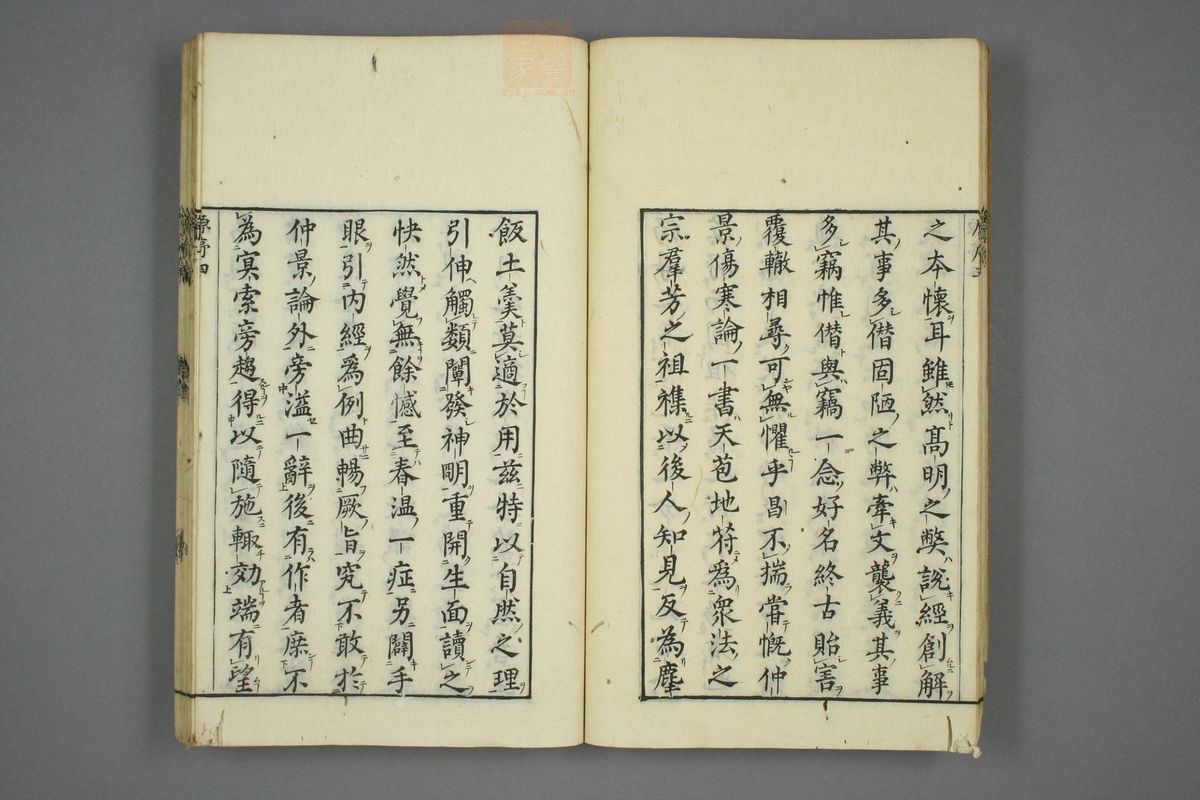 之本懷耳雖然高明之弊說經創解
其事多僭固陋之弊牽文襲義其事
多竊惟僭與竊一念好名終古貽害
覆轍相尋可無懼乎昌不揣嘗慨仲
景傷寒論一書天苞地符爲衆法之
宗羣芳之祖襍以後人知見反為塵
飯土羹莫適於用兹特以自然之理
引伸觸類闡發神明重開生面讀之
快然覺無餘憾至春温一症另闢手
眼引内經爲例曲暢厥旨究不敢於
仲景論外旁溢一辭後有作者庶不
為冥索旁趨得以隨施輙効端有望
原序四
zysj.com.cn